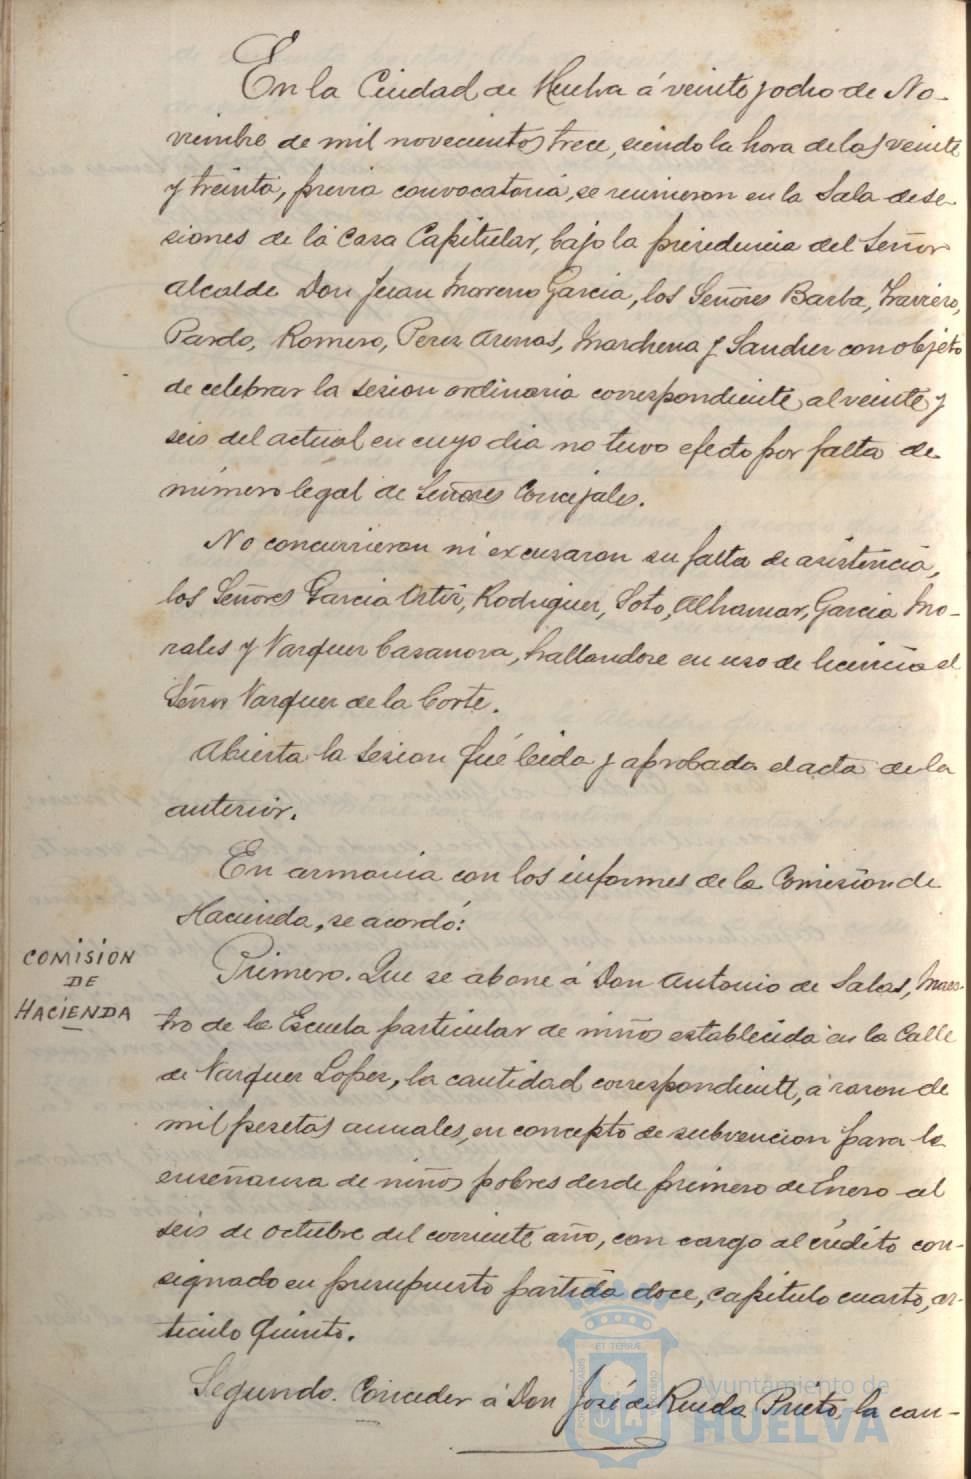 En la Ciudad de Huelva á veinte y ocho de No-
viembre de mil novecientos trece, siendo la hora de las veinte
y treinta, previa convocatoria, se reunieron en la Sala de se-
siones de la Casa Capitular, bajo la presidencia del Señor
Alcalde Don Juan Moreno Garcia, los Señores Barba,
Pardo, Romero, Perez Arenas, Marchena y Sanchez con objeto
de celebrar la sesion ordinaria correspondiente al veinte y
seis del actual en cuyo dia no tuvo efecto por falta de
número legal de Señores Concejales.
No concurrieron ni excusaron su falta de asistencia,
los Señores Garcia Ortiz, Rodriguez, Soto, Garcia Mo-
rales y Vazquez Casanova, hallandose en uso de licencia el
Señor Vazquez de la Corte.
Abierta la sesion fué leida y aprobada el acta de la
anterior.
En armonia con los informes de la Comision de
Hacienda, se acordó:
COMISION
DE
HACIENDA
Primero. Que se abone á Don Antonio de Salas, Maes-
tro de la Escuela particular de niños establecida en la Calle
de Vazquez Lopez, la cantidad correspondiente, á razon de
mil pesetas anuales, en concepto de subvencion para la
enseñanza de niños pobres desde primero de Enero al
seis de octubre del corriente año, con cargo al crédito con-
signado en presupuesto partida doce, capitulo cuarto, ar-
ticulo quinto.
Segundo. Conceder á Don José de Rueda Prieto, la can-
Ayuntamiento de
HUELVA